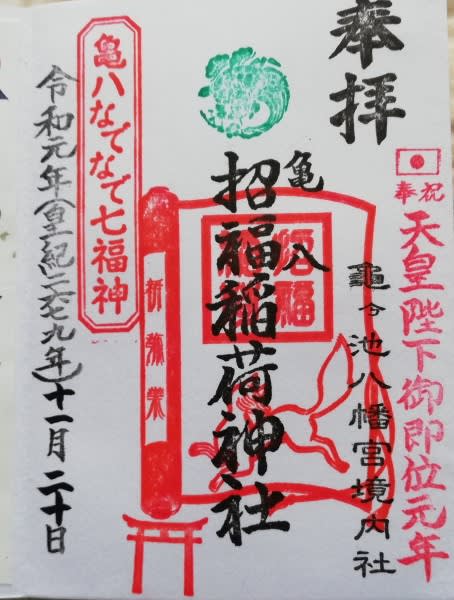 奉拝
奉祝
天皇陛下御即位元年
龜ヶ池八幡宮境内社
亀八
招福稲荷神社
招福
亀八なでなで七福神
令和元年(皇紀二六七九年)十一月二十日